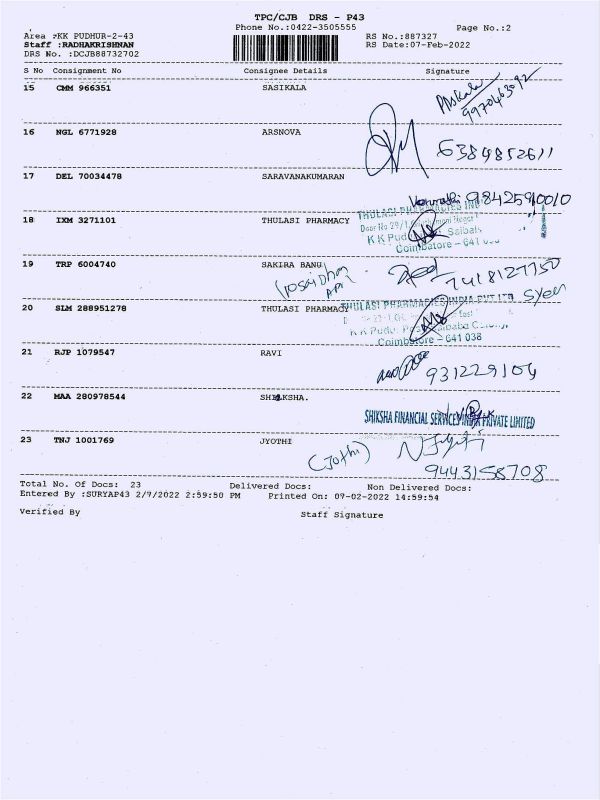 TPC/CJB DRS - P43
Phone No.:0422-3505555
Page No.:2
Area :KK PUDHUR-2-43
RS No.:887327
Staff :RADHAKRISHNAN
RS Date:07-Feb-2022
DRS No. :DCJB88732702
S No Consignment No Consignee Details Signature
15 CMM 966351 SASIKALA
16 NGL 6771928 ARSNOVA
6384852611
17 DEL 70034478 SARAVANAKUMARAN
THULASI PHARMACIES IND
18 IXM 3271101 THULASI PHARMACY
Coimbatore - 641
19 TRP 6004740 SAKIRA BANU
7418127750
Syed
20 SLM 288951278 THULASI PHARMACY
THULASI PHARMACIES INDIA PVT LTD
Coimbatore - 641 038
21 RJP 1079547 RAVI
931229104
22 MAA 280978544 SHIKSHA.
SHIKSHA FINANCIAL SERVICES INDIA PRIVATE LIMITED
23 TNJ 1001769 JYOTHI
(Jothi)
9443158708
Total No. Of Docs: 23 Delivered Docs: Non Delivered Docs:
Entered By :SURYAP43 2/7/2022 2:59:50 PM Printed On: 07-02-2022 14:59:54
Verified By Staff Signature